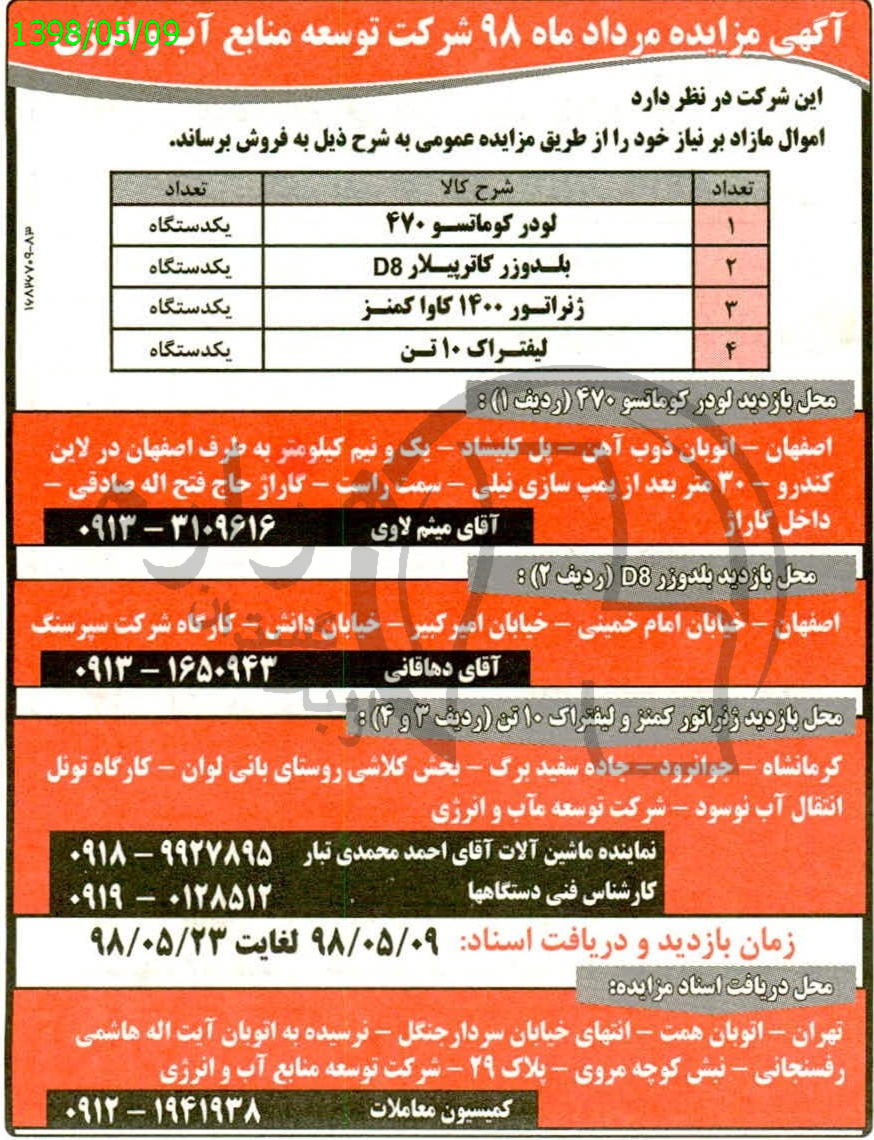 1398/05/09
آگهی مزایده مرداد ماه ۹۸ شرکت توسعه منابع آب و انرژی
این شرکت در نظر دارد
اموال مازاد بر نیاز خود را از طریق مزایده عمومی به شرح ذیل به فروش برساند.
تعداد شرح کالا تعداد
۱ لودر کوماتسو ۴۷۰ یکدستگاه
۲ بلدوزر کاترپیلار D8 یکدستگاه
۳ ژنراتور ۱۴۰۰ کاوا کمنز یکدستگاه
۴ لیفتراک ۱۰ تن یکدستگاه
محل بازدید لودر کوماتسو ۴۷۰ (ردیف ۱) :
اصفهان – اتوبان ذوب آهن – پل کلیشاد – یک و نیم کیلومتر به طرف اصفهان در لاین
کندرو – ۳۰ متر بعد از پمپ سازی نیلی – سمت راست – گاراژ حاج فتح اله صادقی –
داخل گاراژ
آقای میثم لاوی ۳۱۰۹۶۱۶ – ۰۹۱۳
محل بازدید بلدوزر D8 (ردیف ۲) :
اصفهان – خیابان امام خمینی – خیابان امیرکبیر – خیابان دانش – کارگاه شرکت سپرسنگ
آقای دهاقانی ۱۶۵۰۹۴۳ – ۰۹۱۳
محل بازدید ژنراتور کمنز و لیفتراک ۱۰ تن (ردیف ۳ و ۴) :
کرمانشاه – جوانرود – جاده سفید برگ – بخش کلاشی روستای بانی لوان – کارگاه تونل
انتقال آب نوسود – شرکت توسعه مآب و انرژی
نماینده ماشین آلات آقای احمد محمدی تبار ۹۹۲۷۸۹۵ – ۰۹۱۸
کارشناس فنی دستگاهها ۰۱۲۸۵۱۲ – ۰۹۱۹
زمان بازدید و دریافت اسناد: ۹۸/۰۵/۰۹ لغایت ۹۸/۰۵/۲۳
محل دریافت اسناد مزایده:
تهران – اتوبان همت – انتهای خیابان سردار جنگل – نرسیده به اتوبان آیت اله هاشمی
رفسنجانی – نبش کوچه مروی – پلاک ۲۹ – شرکت توسعه منابع آب و انرژی
کمیسیون معاملات ۱۹۴۱۹۳۸ – ۰۹۱۲